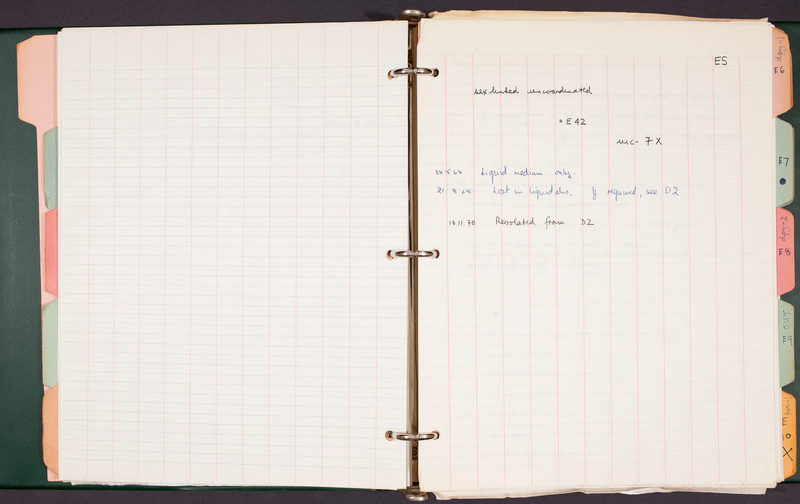 E5
sex linked uncoordinated
• E42
unc-7 X
20.5.68 Liquid medium only.
21.8.68 Lost in liquid also. If required, see D2
10.11.70 Reisolated from D2
dpy-1
E6
E7
dpy-2
E8
OUT
E9
E
10
X